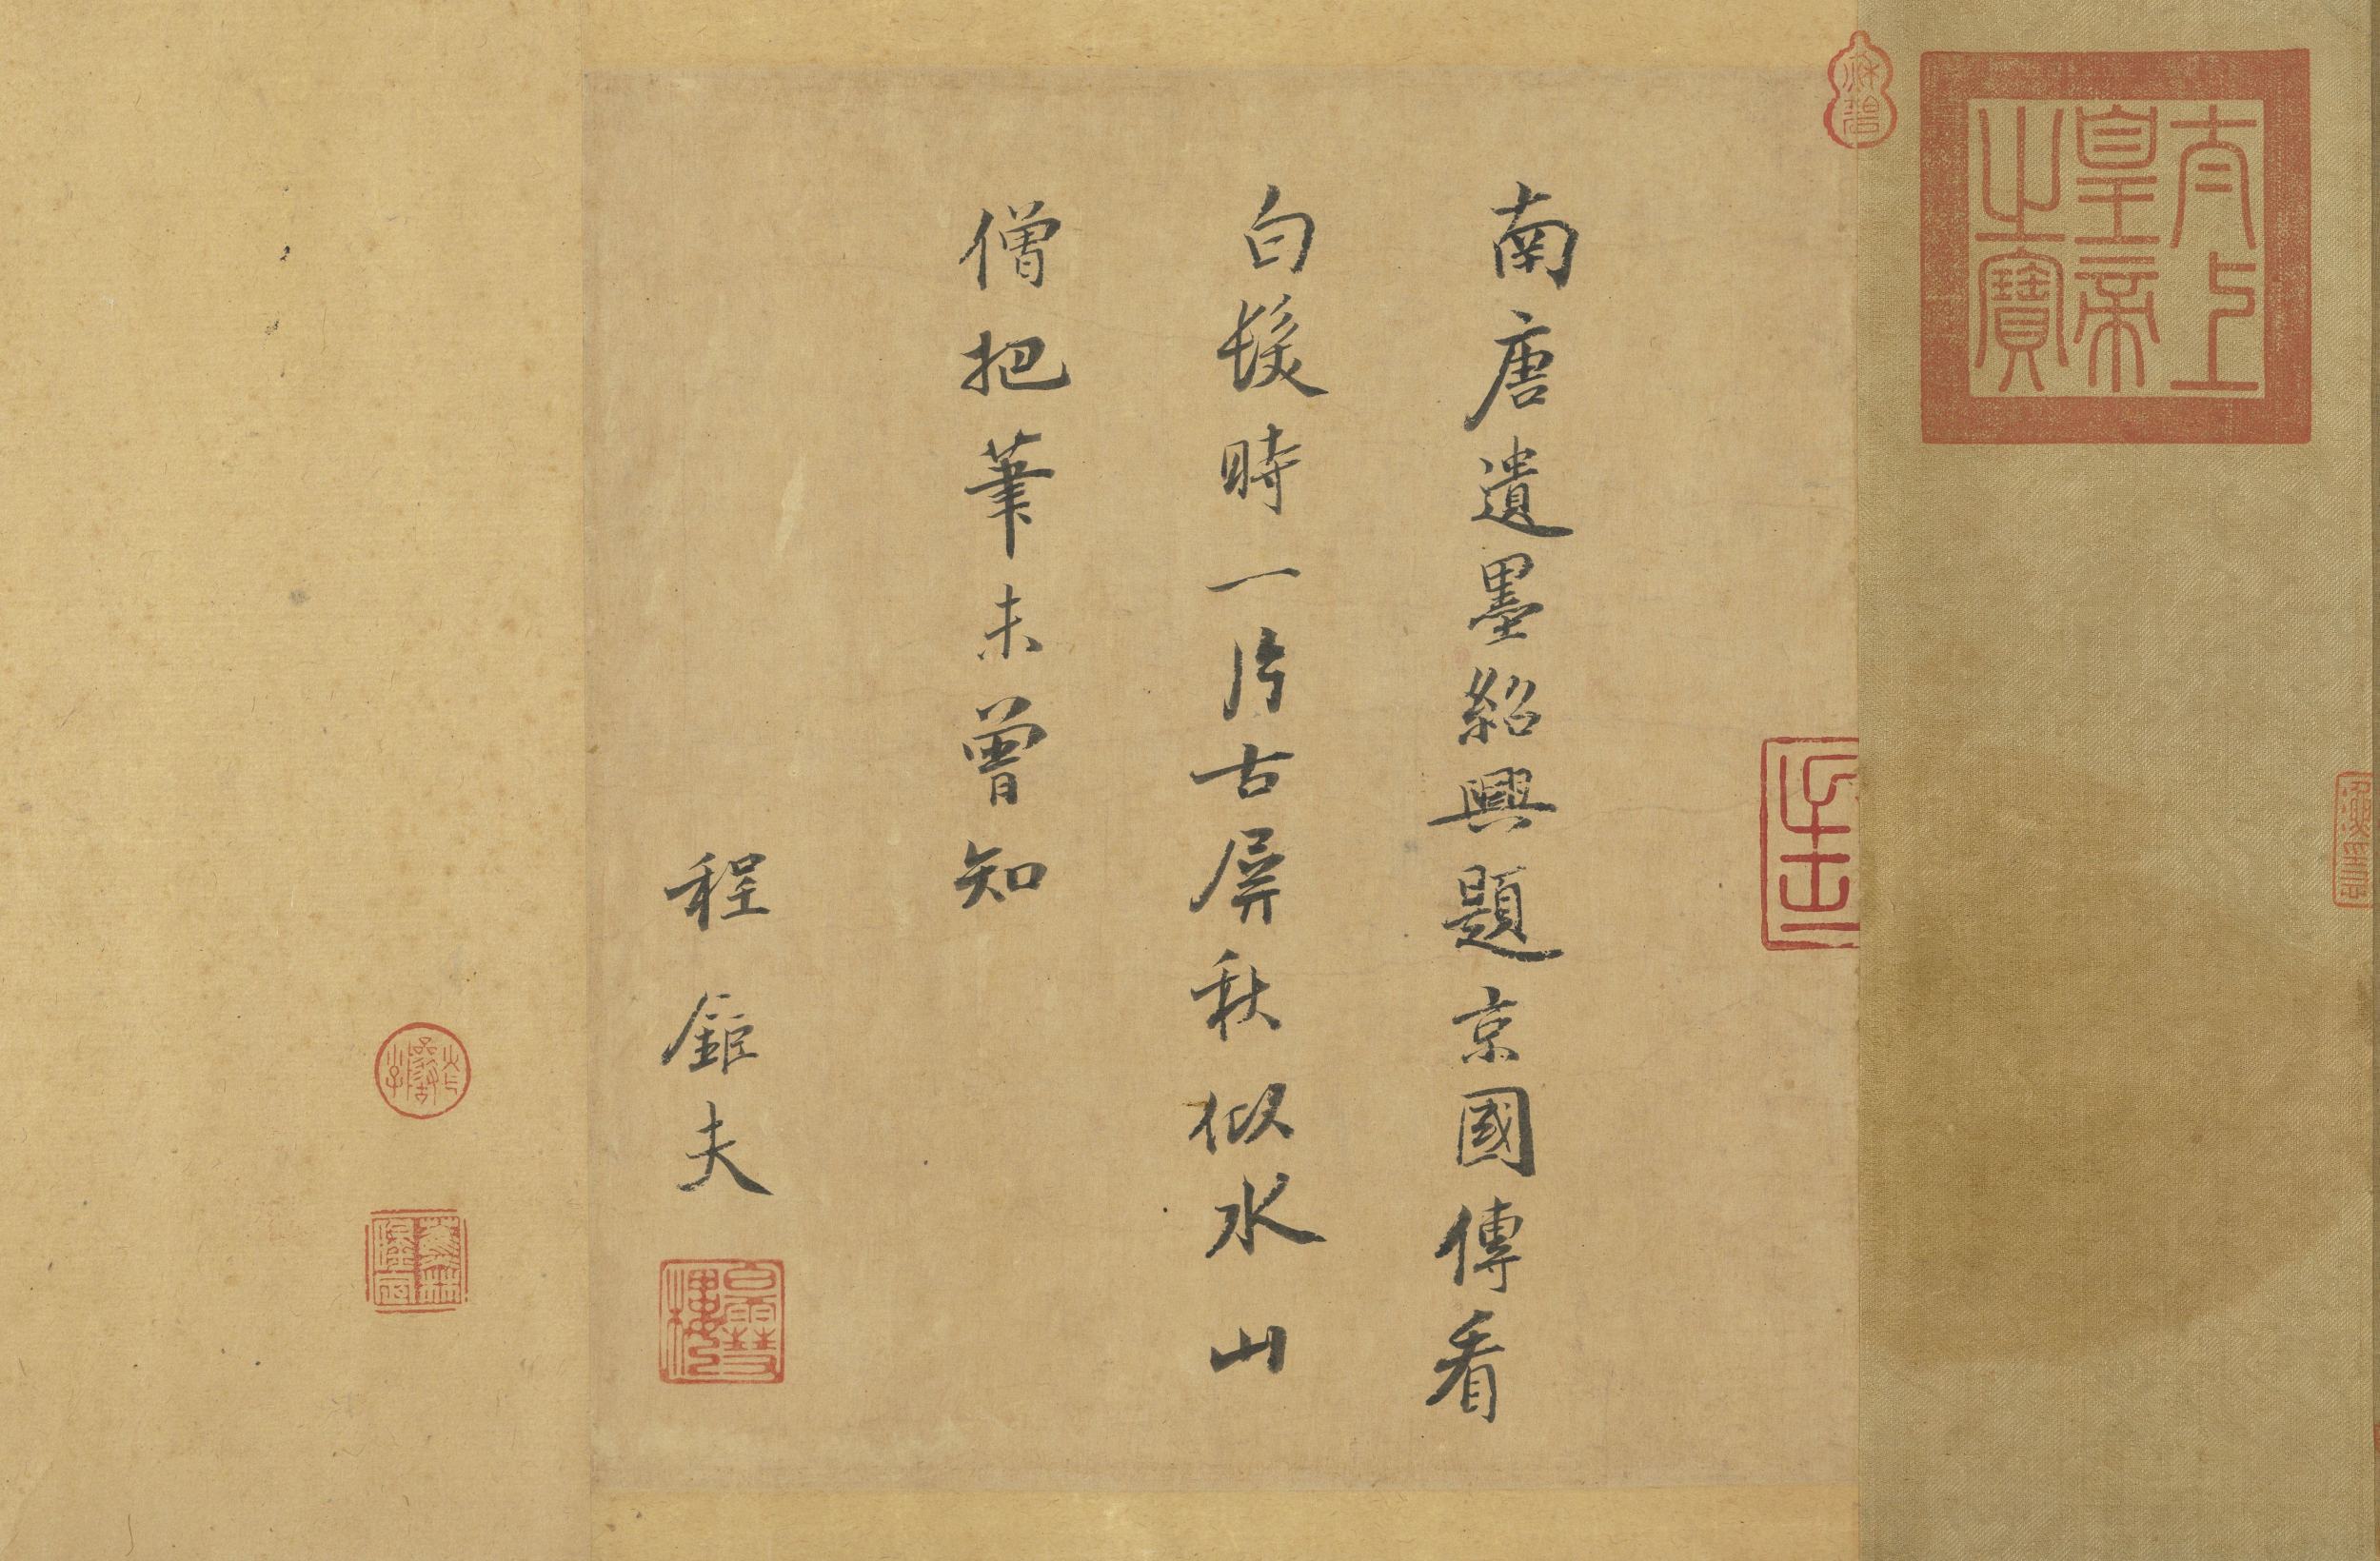 太上
皇帝
之寶
南唐遺墨紹興題京國傳看
白髮時一片古屏秋似水山
僧把筆未曾知
程鉅夫
蕉林